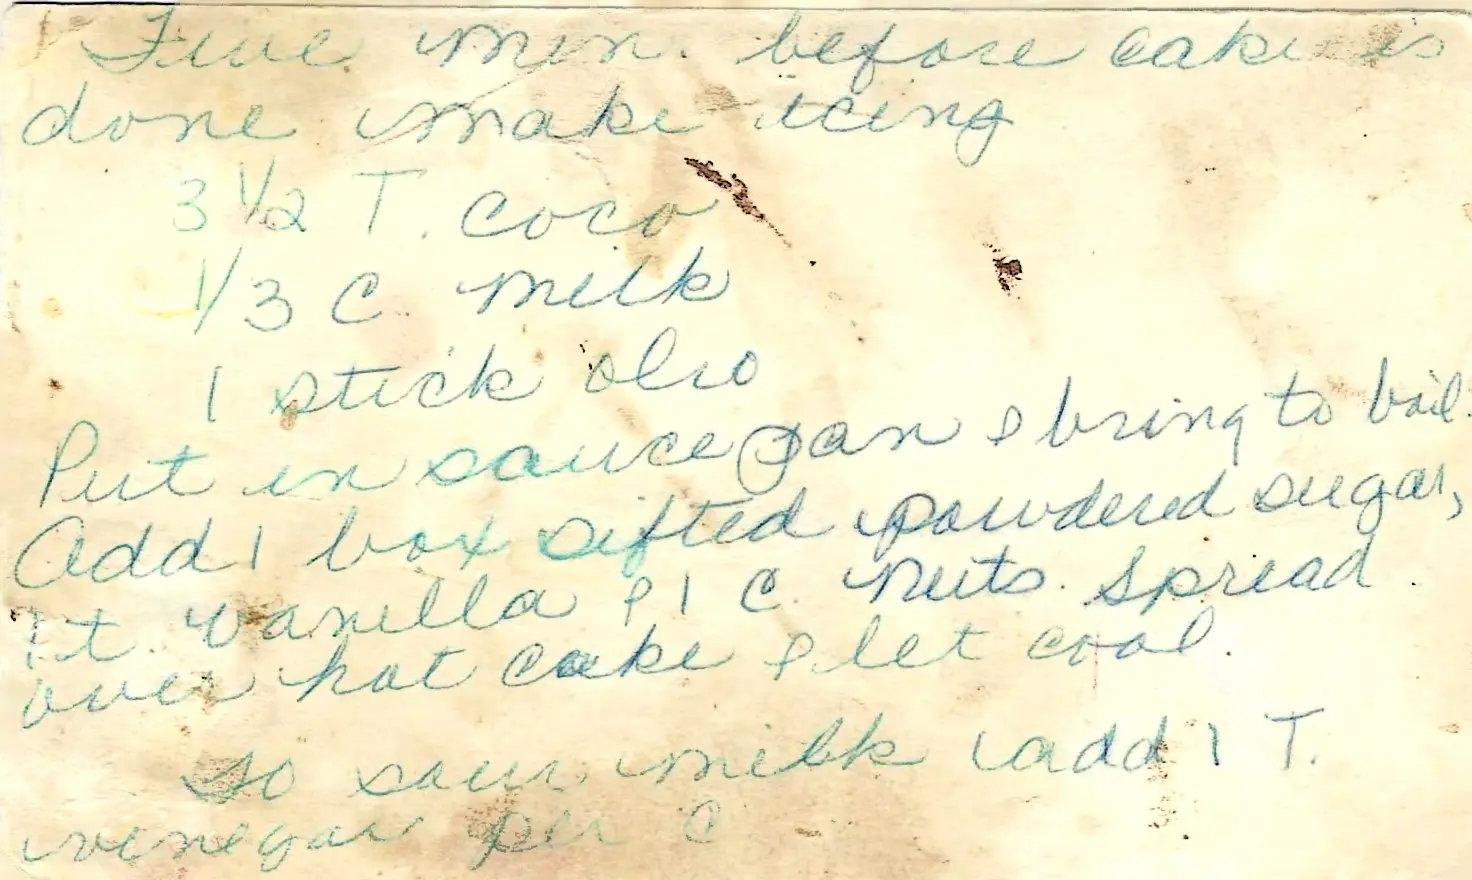 Five min. before cake is
done make icing
3 1/2 T. coco
1/3 C milk
1 stick olio
Put in sauce pan & bring to boil.
Add 1 box sifted powdered sugar,
1 t. vanilla & 1 C. nuts. Spread
over hot cake & let cool.
To sour milk add 1 T.
vinegar per C